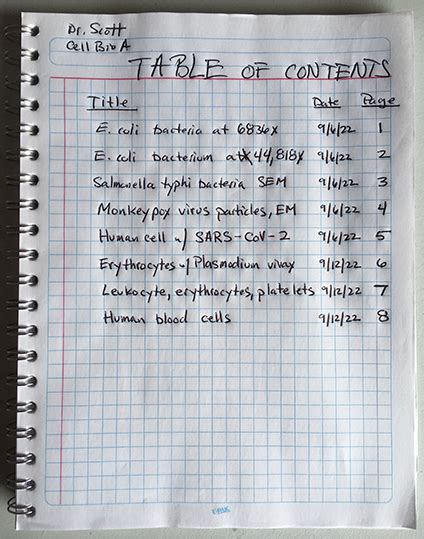 Dr. Scott
Cell Bio A
TABLE OF CONTENTS
Title Date Page
E. coli bacteria at 6836x 9/6/22 1
E. coli bacterium at 44,818x 9/6/22 2
Salmonella typhi bacteria SEM 9/6/22 3
Monkeypox virus particles, EM 9/6/22 4
Human cell w/ SARS-CoV-2 9/6/22 5
Erythrocytes w/ Plasmodium vivax 9/12/22 6
Leukocyte, erythrocytes, platelets 9/12/22 7
Human blood cells 9/12/22 8